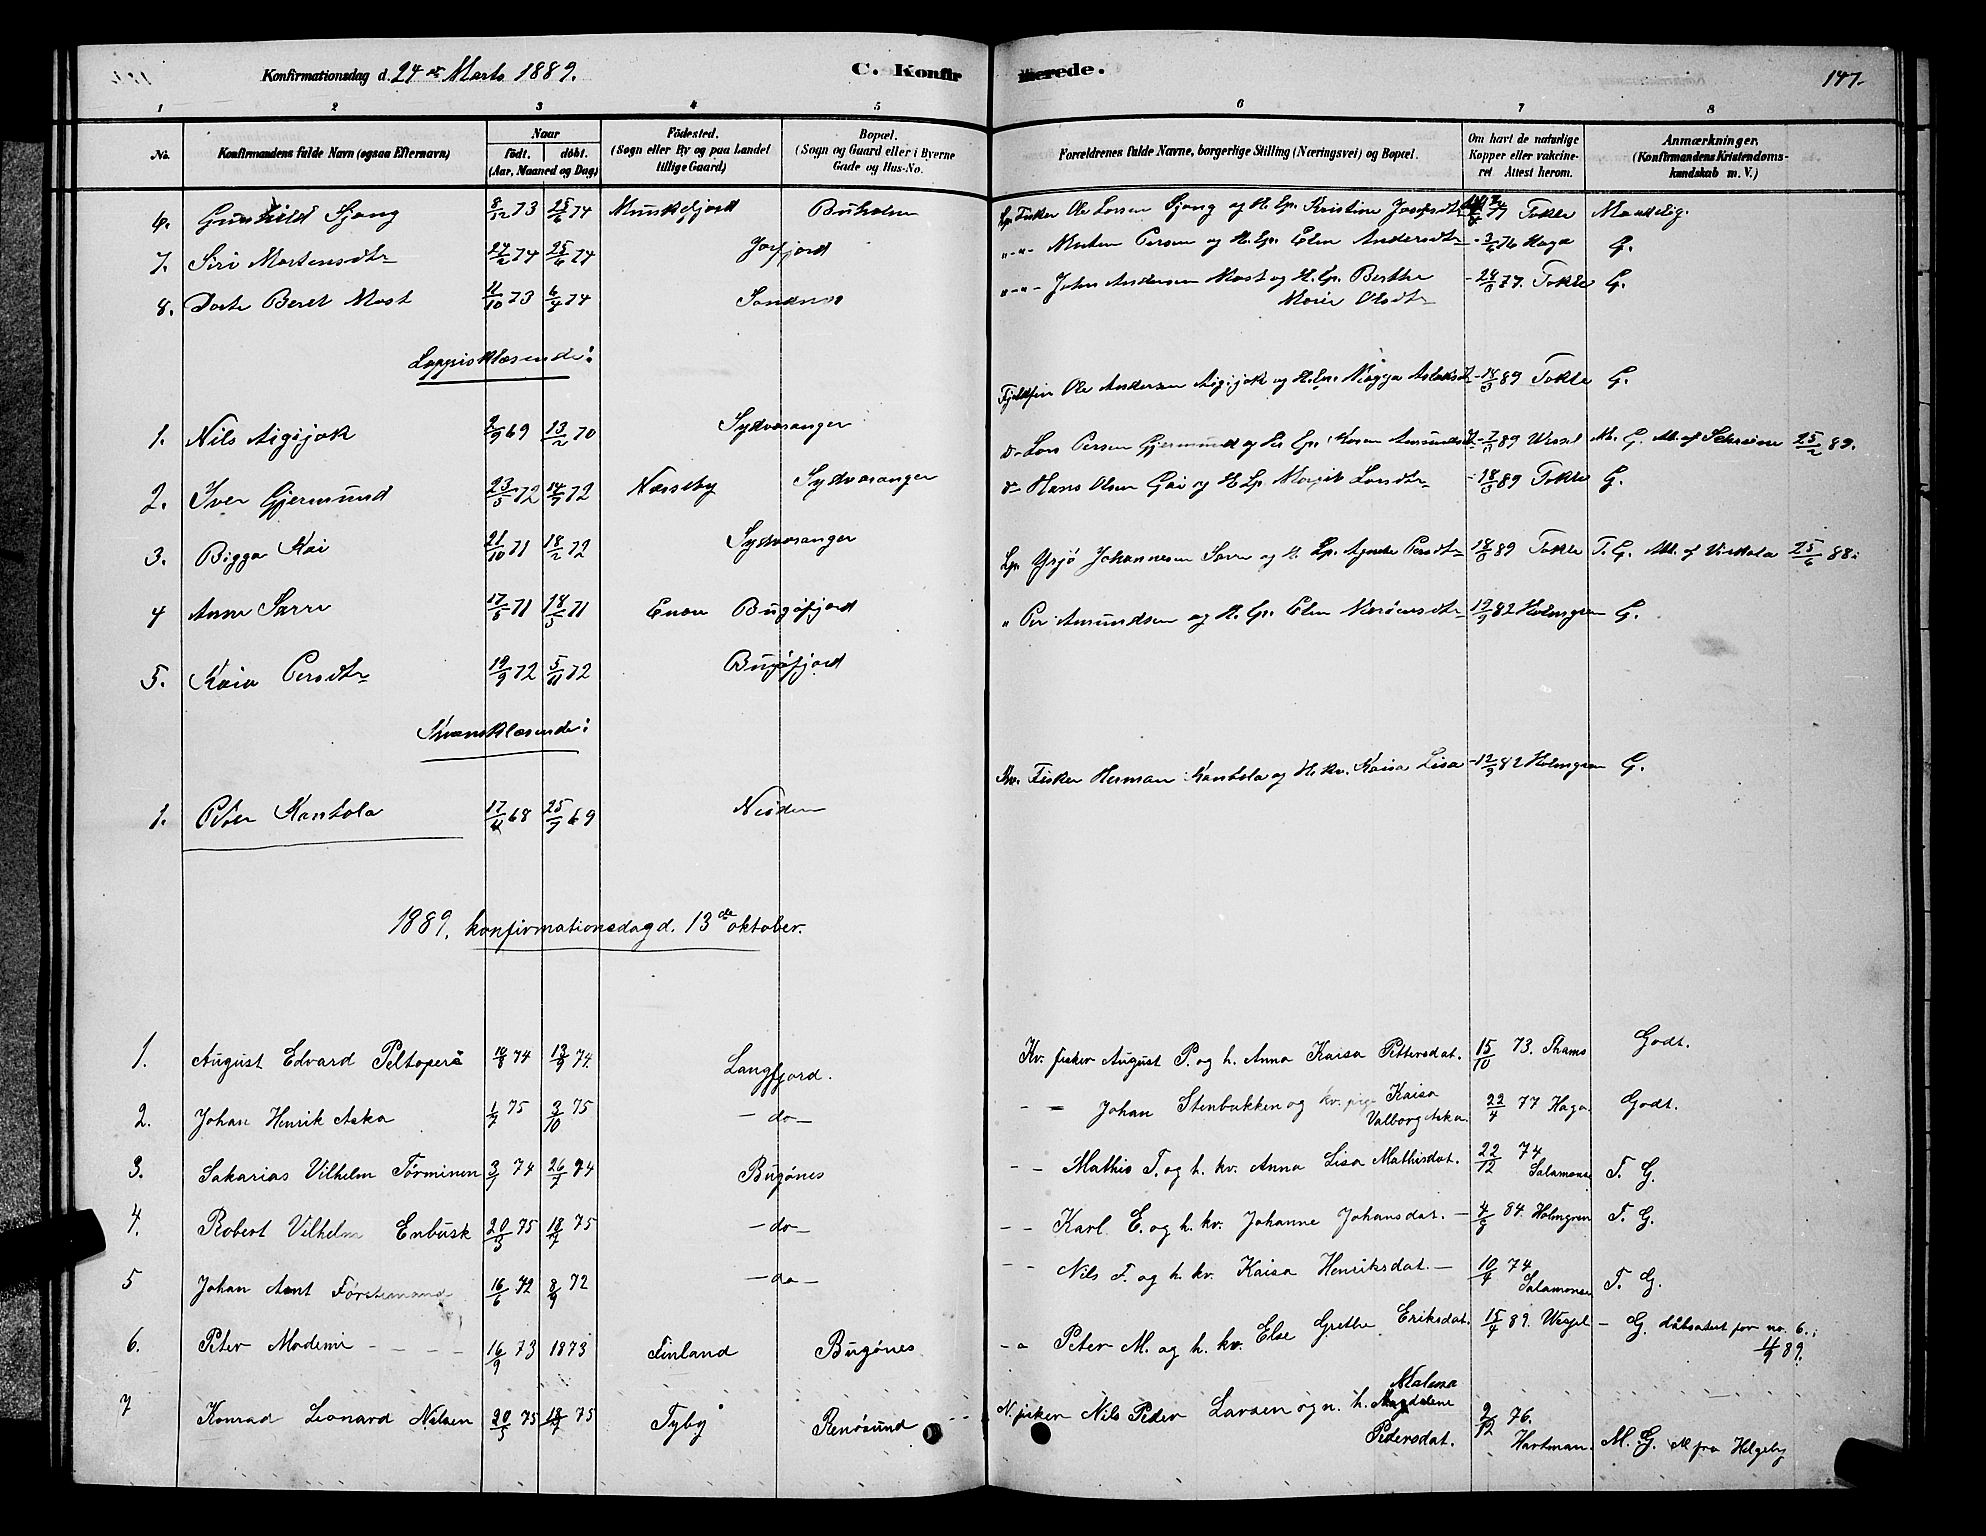 Konfirmationsdag d. 24de Marts 1889. C. Konfirmerede. 147.
1 2 3 4 5 6 7 8
No. Konfirmandens fulde Navn (ogsaa Efternavn) Naar födt. döbt. (Aar, Maaned og Dag) Födested. (Sogn eller By og paa Landet tillige Gaard) Bopæl. (Sogn og Gaard eller i Byerne Gade og Hus-No. Forældrenes fulde Navne, borgerlige Stilling (Næringsvei) og Bopæl. Om havt de naturlige Kopper eller vakcineret. Attest herom. Anmærkninger. (Konfirmandens Kristendomskundskab m. V.)
6. Gunhild Sjang 8/12 73 25/6 74 Munkefjord Buholm Lp. Fisker Ole Larsen Sjang og H. Lp. Kristine Josefsdtr 77 Fokle Maadelig.
7. Siri Mortensdtr 24/2 74 25/6 74 Jarfjord Morten Persen og H. Lp. Elen Andersdtr 3/6 76 Haga G.
8. Dorte Beret Mast 11/10 73 6/4 74 Sandnes John Andersen Mast og H. Lp. Berthe Marie Olsdtr 24/8 77. Fokle G.
Lappisklæsende:
1. Nils Aigijok 2/9 69 13/2 70 Sydvaranger Fjeldfin Ole Andersen Aigijok og H. Lp. Magga Aslaksdt 18/3 89 Fokle G.
2. Iver Gjermund 23/5 72 14/7 72 Næsseby Sydvaranger do Lars Persen Gjermund og H. Lp. Karen Amundsdt 7/3 89 Wessel M. G. At. af Schrøder 25/2 89.
3. Bigga Kai 21/10 71 18/2 72 Sydvaranger do Hans Olsen Gai og H. Lp. Margit Larsdtr 18/3 89 Fokle G.
4 Anne Sarre 17/5 71 18/5 71 Enare Bugøfjord Lp. Yrjø Johannesen Sarre og H. Lp. Persdtr 18/3 89 Fokle T. G. At. af 25/6 88.
5. Kaia Persdtr 19/9 72 5/11 72 Bugøfjord " Per Amundsen og H. Lp. Elen dtr 12/9 82 Holmgren G.
Kvænsklæsende:
1. Peder Kantola 17/6 68 25/7 69 Neiden Kv. Fisker Herman Kantola og H. kv. Kaisa Lisa 12/9 82 Holmgren G.
1889. konfirmationsdag d. 13de oktober.
1. August Edvard Peltoperä 14/8 74 13/9 74. Langfjord. Kv. fisker August P. og h. Anna Kaisa Pettersdat. 15/10 73. Thams Godt.
2. Johan Henrik Aska 1/7 75 3/10 75 — do — – – Johan Stenbakken og kv. pige Kaisa Valborg Aska. 22/4 77 Haga Godt.
3. Sakarias Vilhelm Törminen 3/7 74 26/7 74 Bugönes – – Mathis T. og h. kv. Anna Lisa Mathisdat. 22/12 74 Salamonsen T. G.
4. Robert Vilhelm Enbusk 20/5 75 18/7 75 — do — – – Karl E. og h. kv. Johanne Johansdat. 4/9 84. Holmgren T. G.
5 Johan Arnt Förstemand 16/6 72 8/9 72 — do — – – Nils F. og h. kv. Kaisa Henriksdat. — 10/4 74 Salamonsen T. G.
6. Peter Modemi 16/9 73 1873 Finland Bugönes – – Peter M. og h. kv. Else Grethe Eriksdat. 15/4 89. Wessel – G. dåbsattest for no. 6.: 11/9 89.
7 Konrad Leonard Nilsen 20/5 75 18/7 75 Tyby Renösund N. fisker Nils Peder Larsen og n. h. Malena Magdalene Pedersdat. 2/12 76. Hartman. M. G. At fra Helgeby